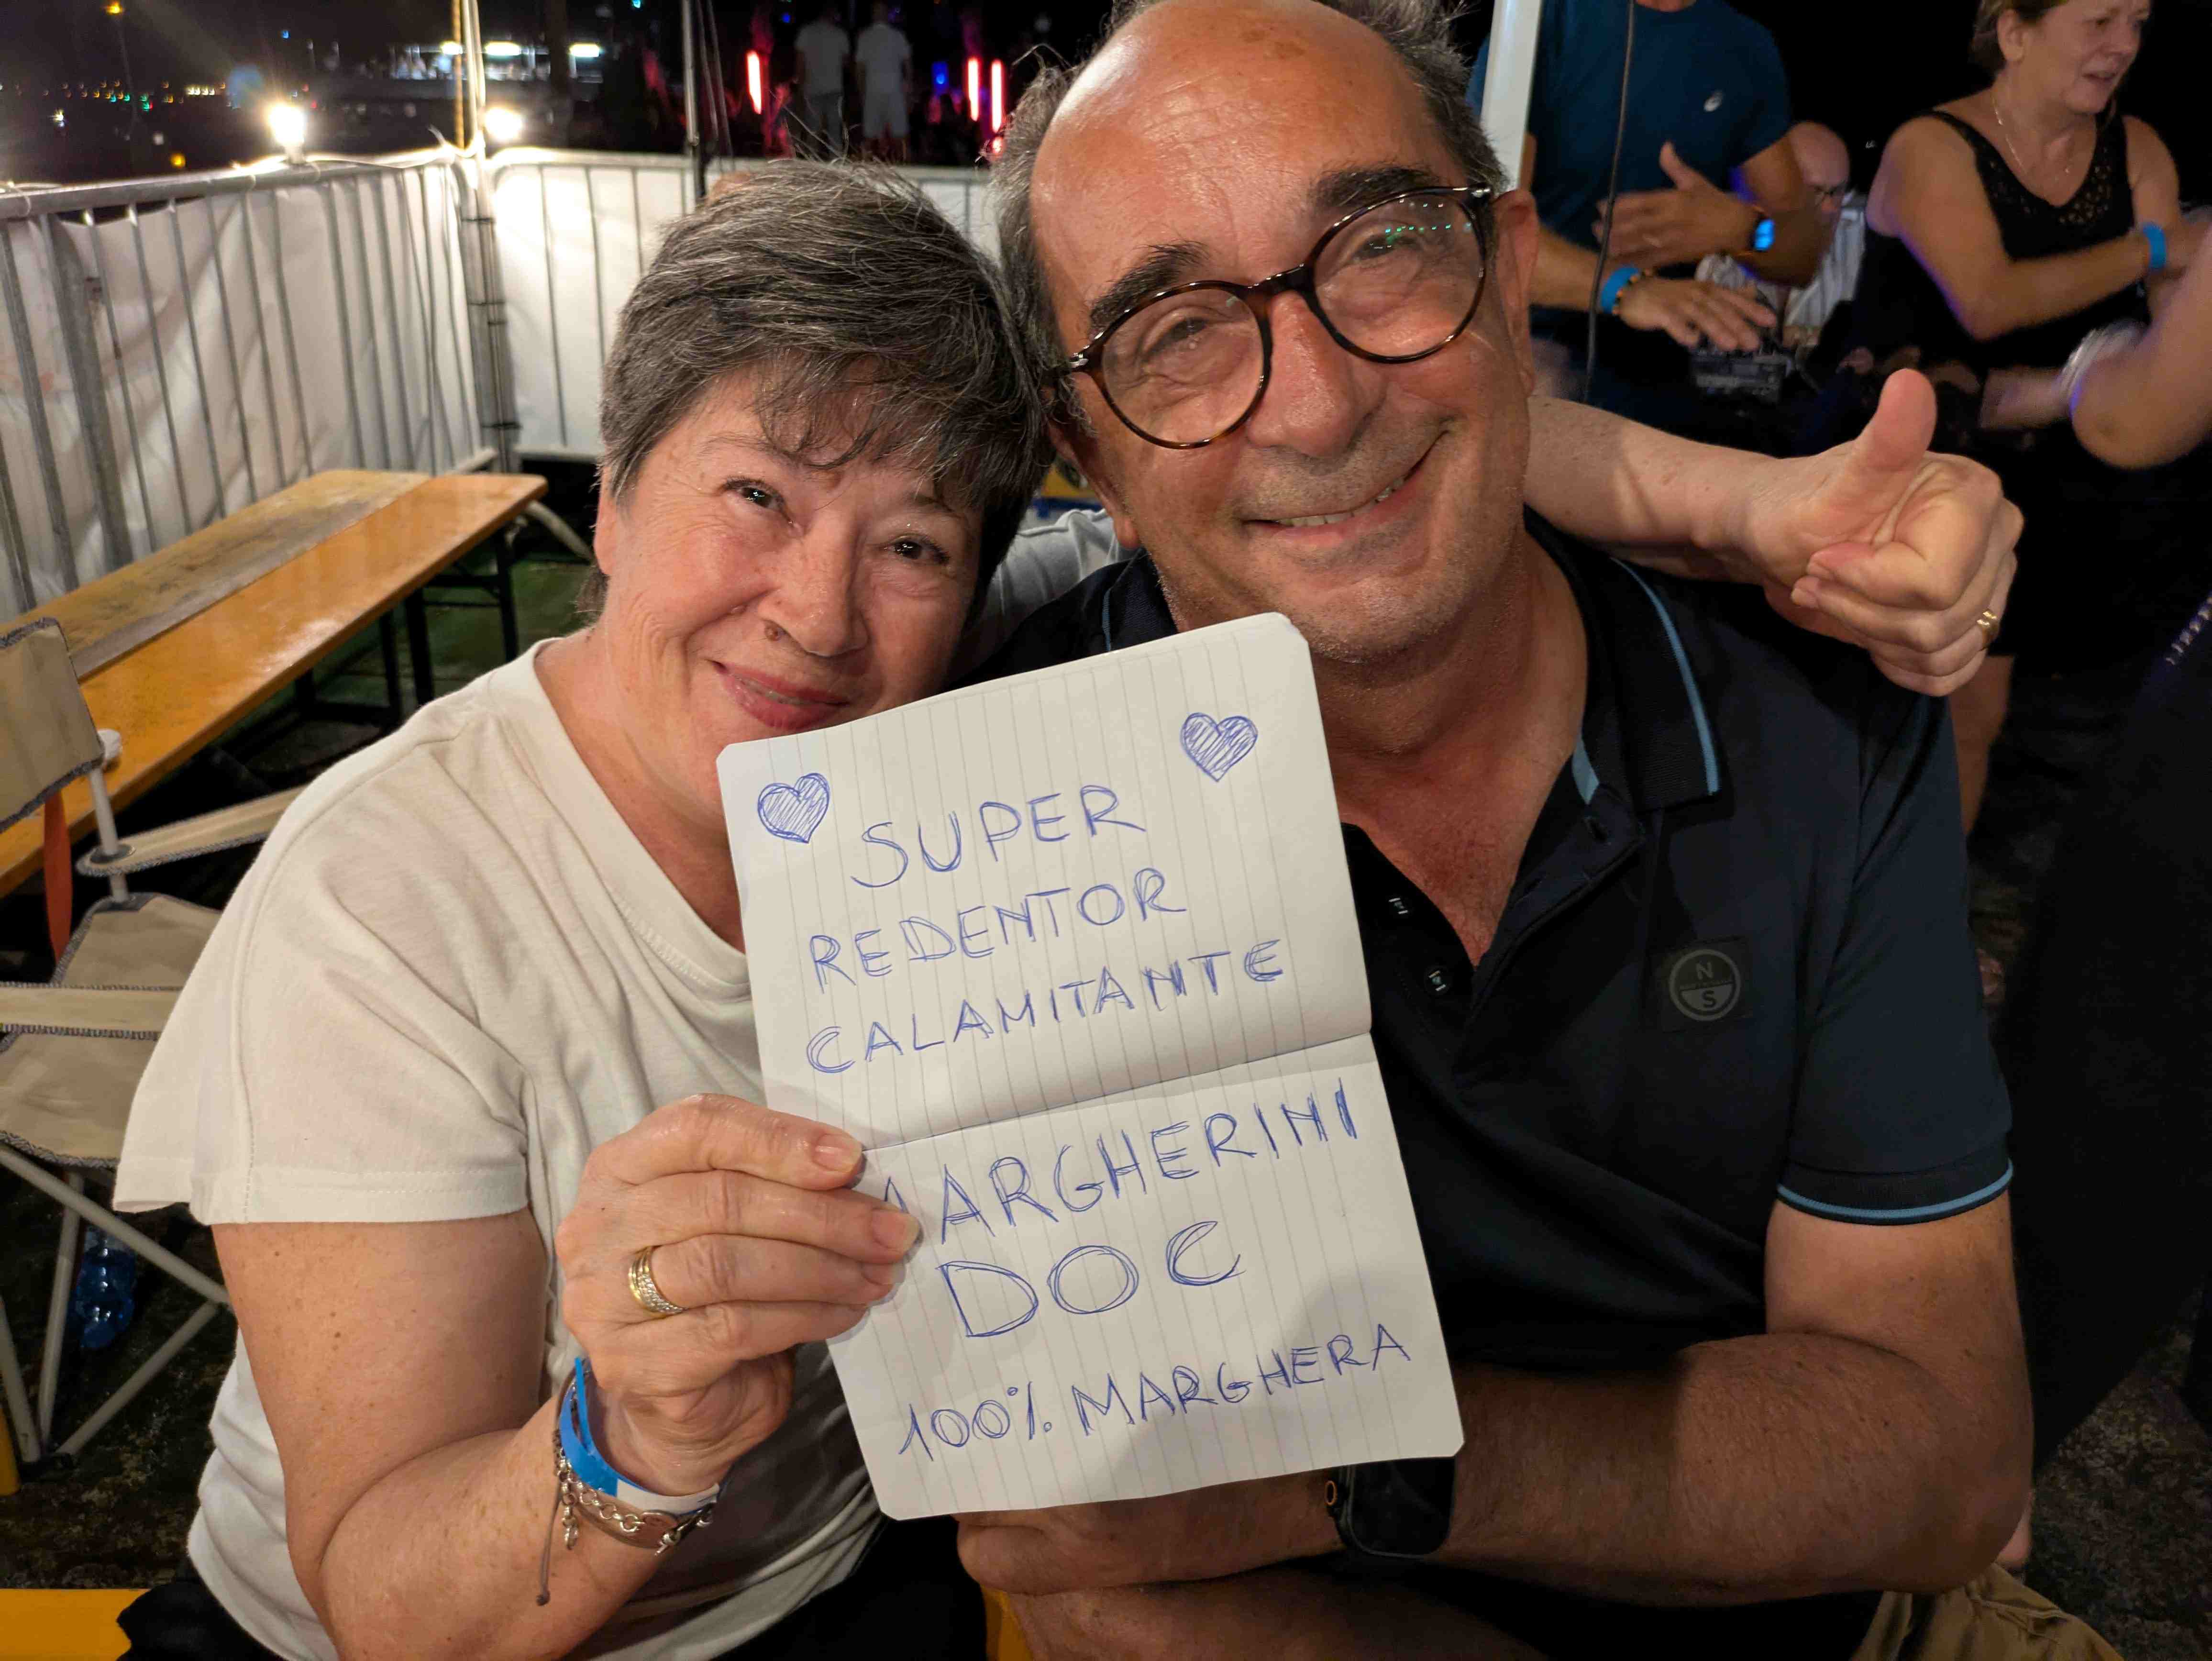 SUPER
REDENTOR
CALAMITANTE
MARGHERINI
DOC
100% MARGHERA
N
S